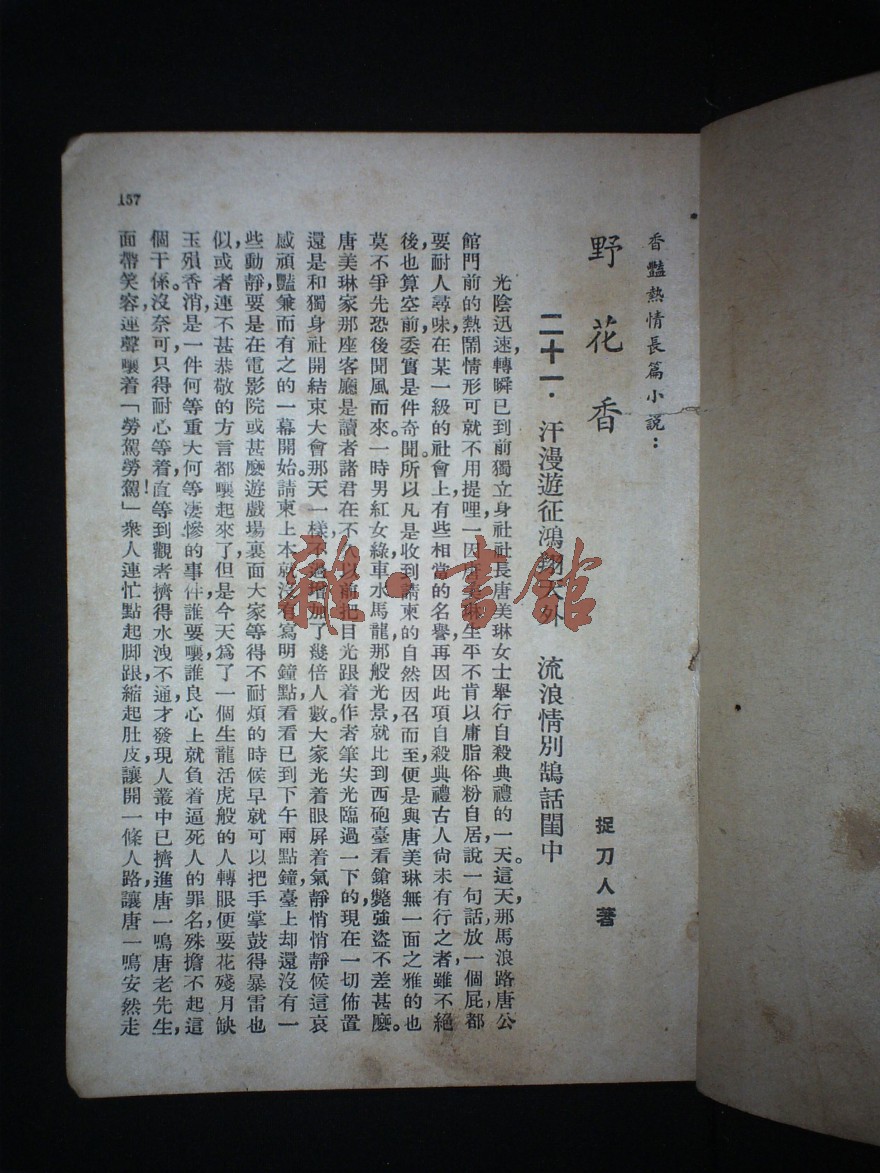 香豔熱情長篇小說：
野花香
捉刀人著
二十一．汗漫遊征鴻翔天外　流浪情別鵠話閨中
光陰迅速，轉瞬已到前獨立身社社長唐美琳女士舉行自殺典禮的一天。這天，那馬浪路唐公
館門前的熱鬧情形可就不用提哩，一因唐美琳生平不肯以庸脂俗粉自居，說一句話，放一個屁，都
要耐人尋味，在某一級的社會上有些相當的名譽，再因此項自殺典禮，古人尙未有行之者，雖不絕
後也算空前，委實是件奇聞。所以凡是收到請柬的自然因召而至，便是與唐美琳無一面之雅的也
莫不爭先恐後聞風而來。一時男紅女綠，車水馬龍，那般光景，就比到西砲臺看鎗斃強盜不差甚麼。
唐美琳家那座客廳是讀者諸君在不久以前把目光跟着作者筆尖光臨過一下的，現在一切佈置
還是和獨身社開結束大會那天一樣，不過增加了幾倍人數。大家光着眼屏着氣靜悄悄靜候這哀
感頑豔兼而有之的一幕開始。請柬上本就沒有寫明鐘點，看看已到下午兩點鐘，臺上却還沒有一
些動靜，要是在電影院或甚麼遊戲場裏面大家等得不耐煩的時候，早就可以把手掌鼓得暴雷也
似，或者連不甚恭敬的方言都嚷起來了，但是今天爲了一個生龍活虎般的人轉眼便要花殘月缺，
玉殞香消，是一件何等重大何等凄慘的事件，誰要嚷誰良心上就負着逼死人的罪名，殊擔不起這
個干係。沒奈何，只得耐心等着，直等到觀者擠得水洩不通，才發現人叢中已擠進唐一鳴唐老先生，
面帶笑容，連聲嚷着「勞駕勞駕！」衆人連忙點起脚跟，縮起肚皮，讓開一條人路，讓唐一鳴安然走
157
雜·書館